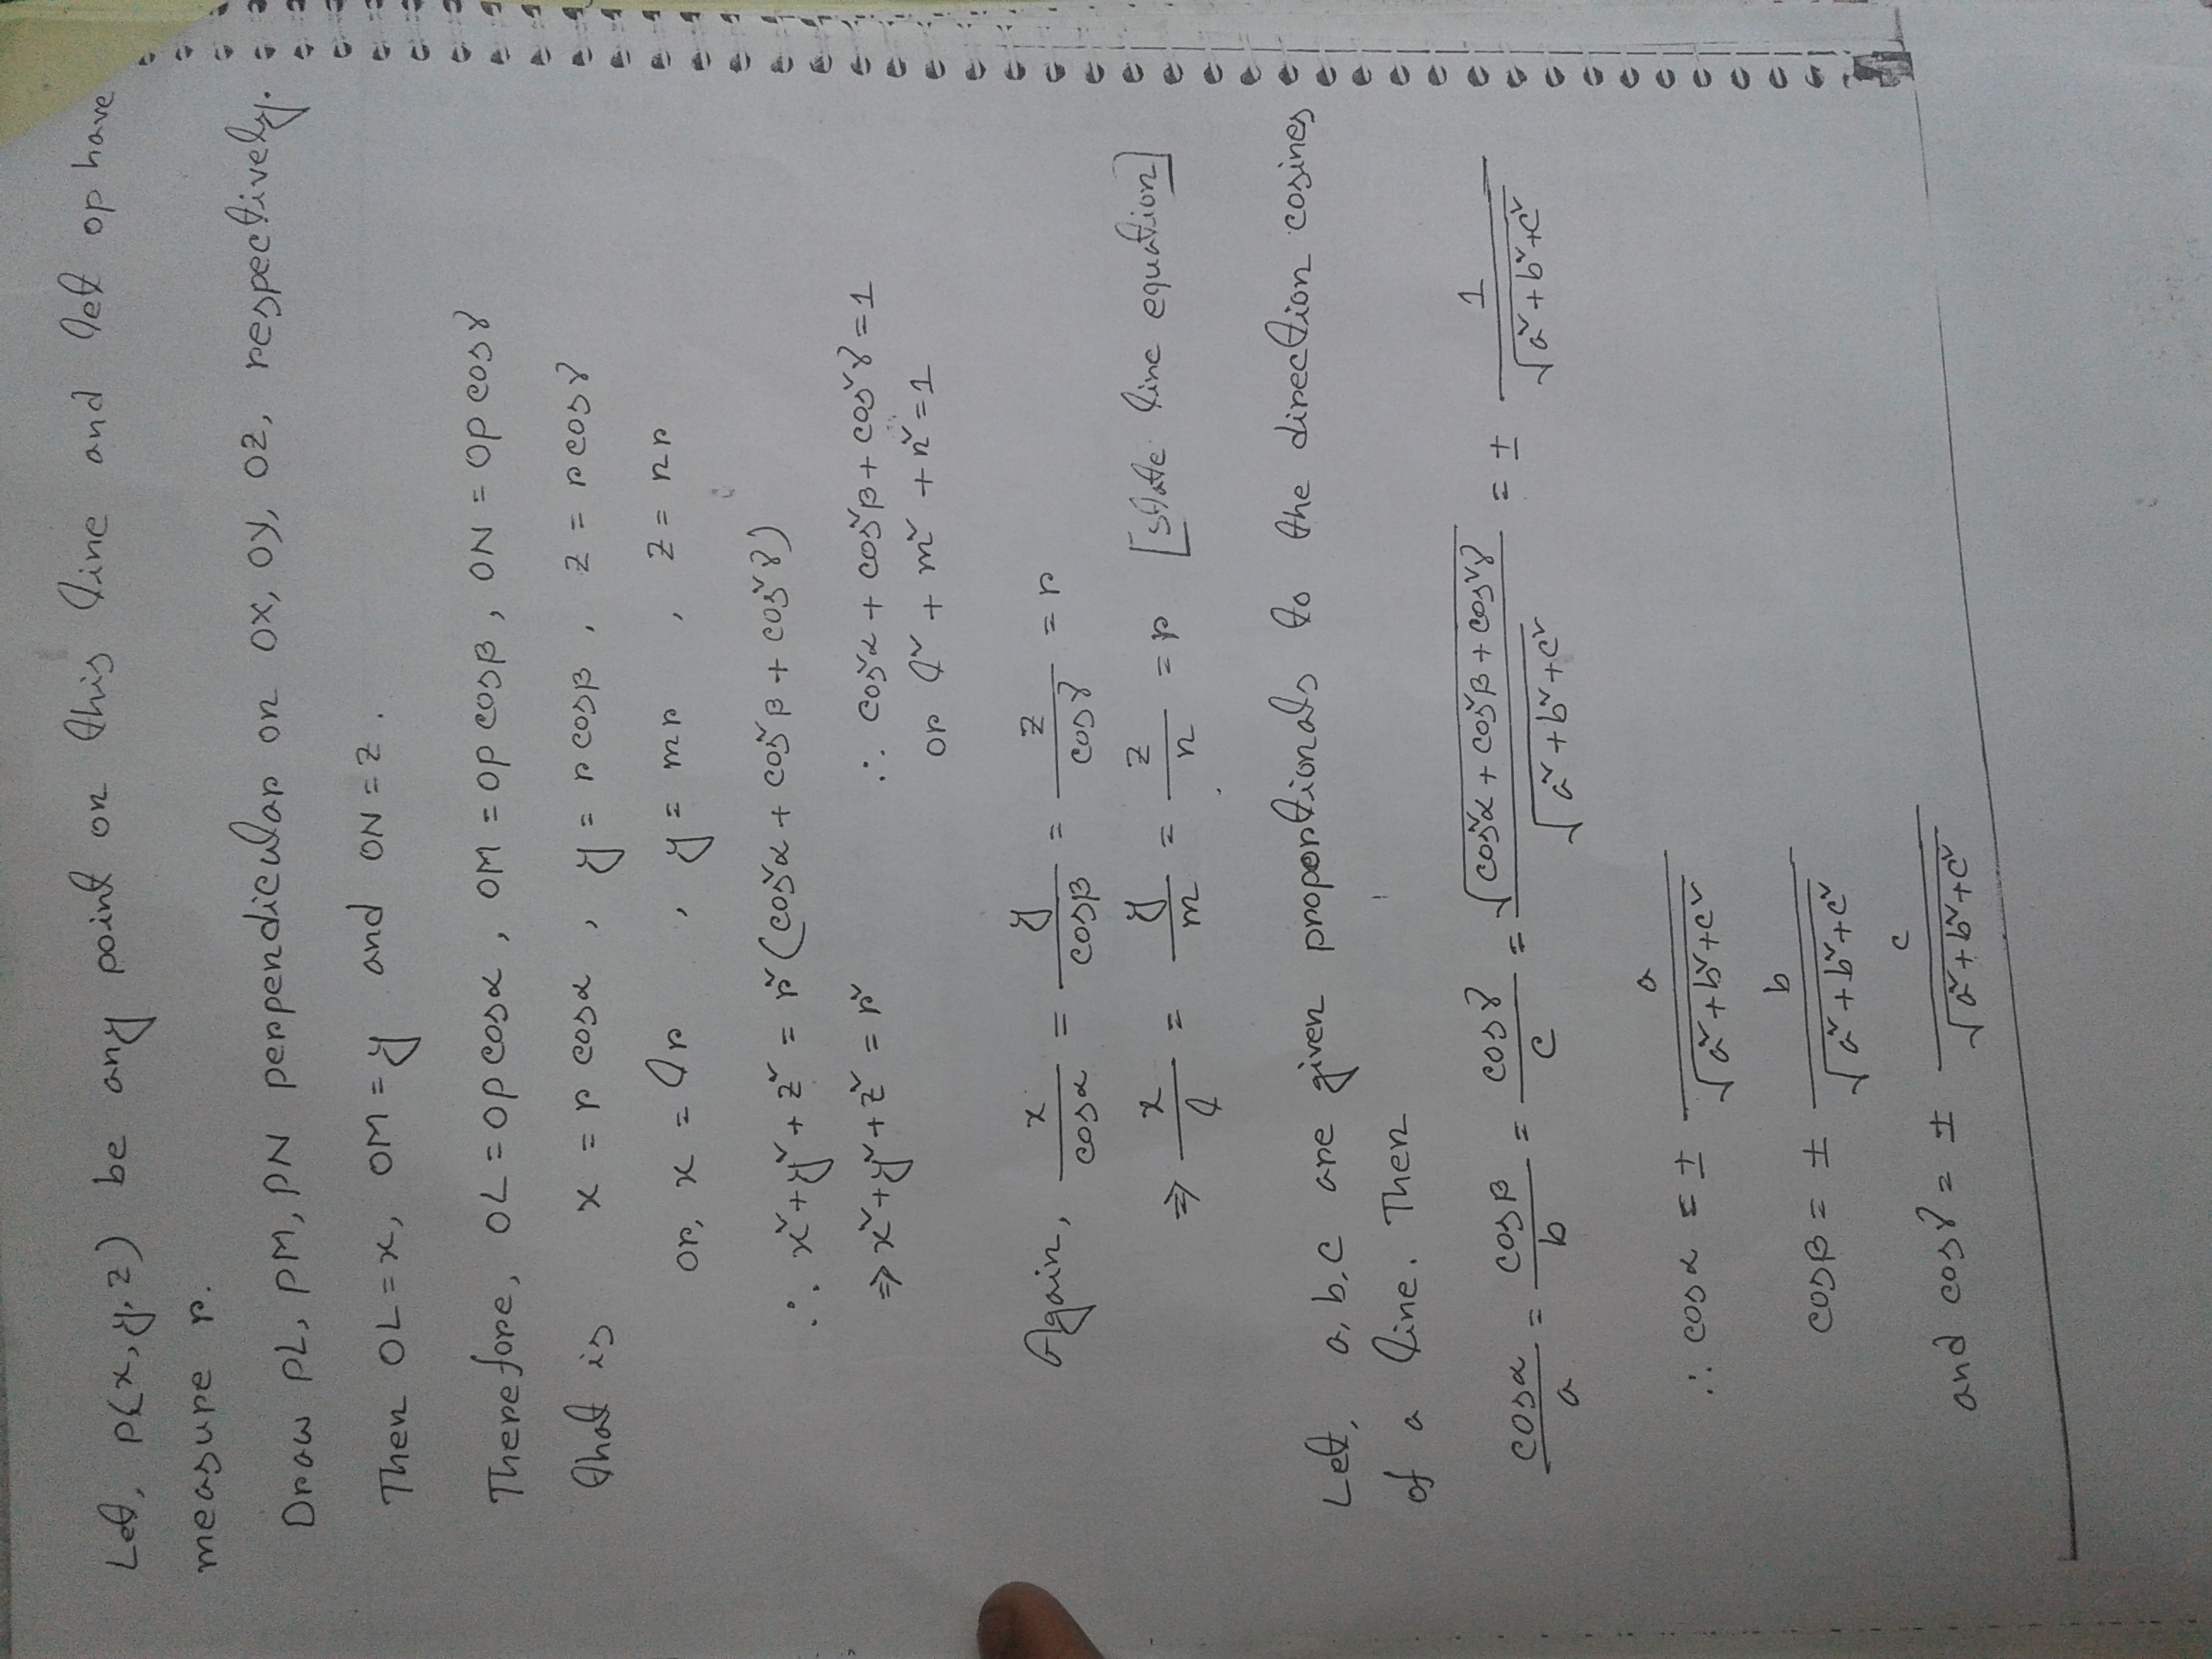 Let, P(x, y, z) be any point on this line and let OP have
measure r.
Draw PL, PM, PN perpendicular on OX, OY, OZ, respectively.
Then OL = x, OM = y and ON = z.
Therefore, OL = OP cosα, OM = OP cosβ, ON = OP cosγ
that is x = r cosα, y = r cosβ, z = r cosγ
or, x = lr, y = mr, z = nr
∴ x² + y² + z² = r² (cos²α + cos²β + cos²γ)
⇒ x² + y² + z² = r² ∴ cos²α + cos²β + cos²γ = 1
or l² + m² + n² = 1
Again, x/cosα = y/cosβ = z/cosγ = r
⇒ x/l = y/m = z/n = r [state line equation]
Let, a, b, c are given proportionals to the direction cosines
of a line. Then
cosα/a = cosβ/b = cosγ/c = √(cos²α + cos²β + cos²γ)/√(a² + b² + c²) = ± 1/√(a² + b² + c²)
∴ cosα = ± a/√(a² + b² + c²)
cosβ = ± b/√(a² + b² + c²)
and cosγ = ± c/√(a² + b² + c²)